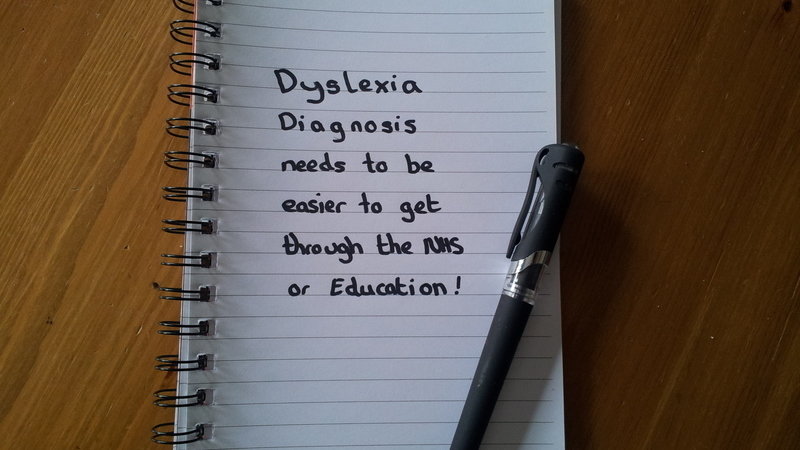 Dyslexia
Diagnosis
needs to be
easier to get
through the NHS
or Education!